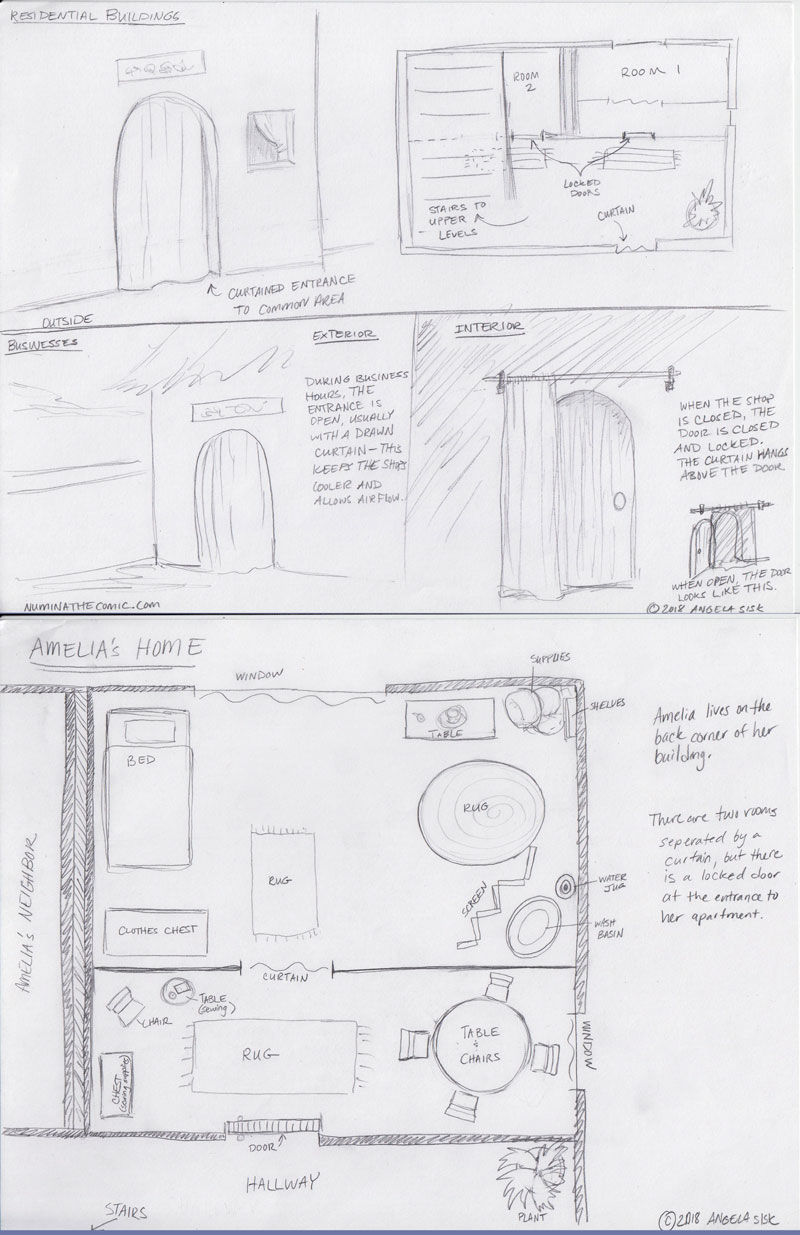 RESIDENTIAL BUILDINGS
CURTAINED ENTRANCE
TO COMMON AREA
OUTSIDE
ROOM
2
ROOM 1
LOCKED
DOORS
STAIRS TO
UPPER
LEVELS
CURTAIN
BUSINESSES
EXTERIOR
DURING BUSINESS
HOURS, THE
ENTRANCE IS
OPEN, USUALLY
WITH A DRAWN
CURTAIN - THIS
KEEPS THE SHOPS
COOLER AND
ALLOWS AIRFLOW.
INTERIOR
WHEN THE SHOP
IS CLOSED, THE
DOOR IS CLOSED
AND LOCKED.
THE CURTAIN HANGS
ABOVE THE DOOR
WHEN OPEN, THE DOOR
LOOKS LIKE THIS.
NUMINATHECOMIC.COM
© 2018 ANGELA SISK
AMELIA'S HOME
WINDOW
SUPPLIES
SHELVES
TABLE
BED
RUG
RUG
AMELIA'S NEIGHBOR
SCREEN
WATER
JUG
WASH
BASIN
CLOTHES CHEST
CURTAIN
CHAIR
TABLE
(sewing)
CHEST
(sewing supplies)
RUG
TABLE
&
CHAIRS
WINDOW
DOOR
HALLWAY
STAIRS
PLANT
Amelia lives on the
back corner of her
building.
There are two rooms
seperated by a
curtain, but there
is a locked door
at the entrance to
her apartment.
© 2018 ANGELA SISK